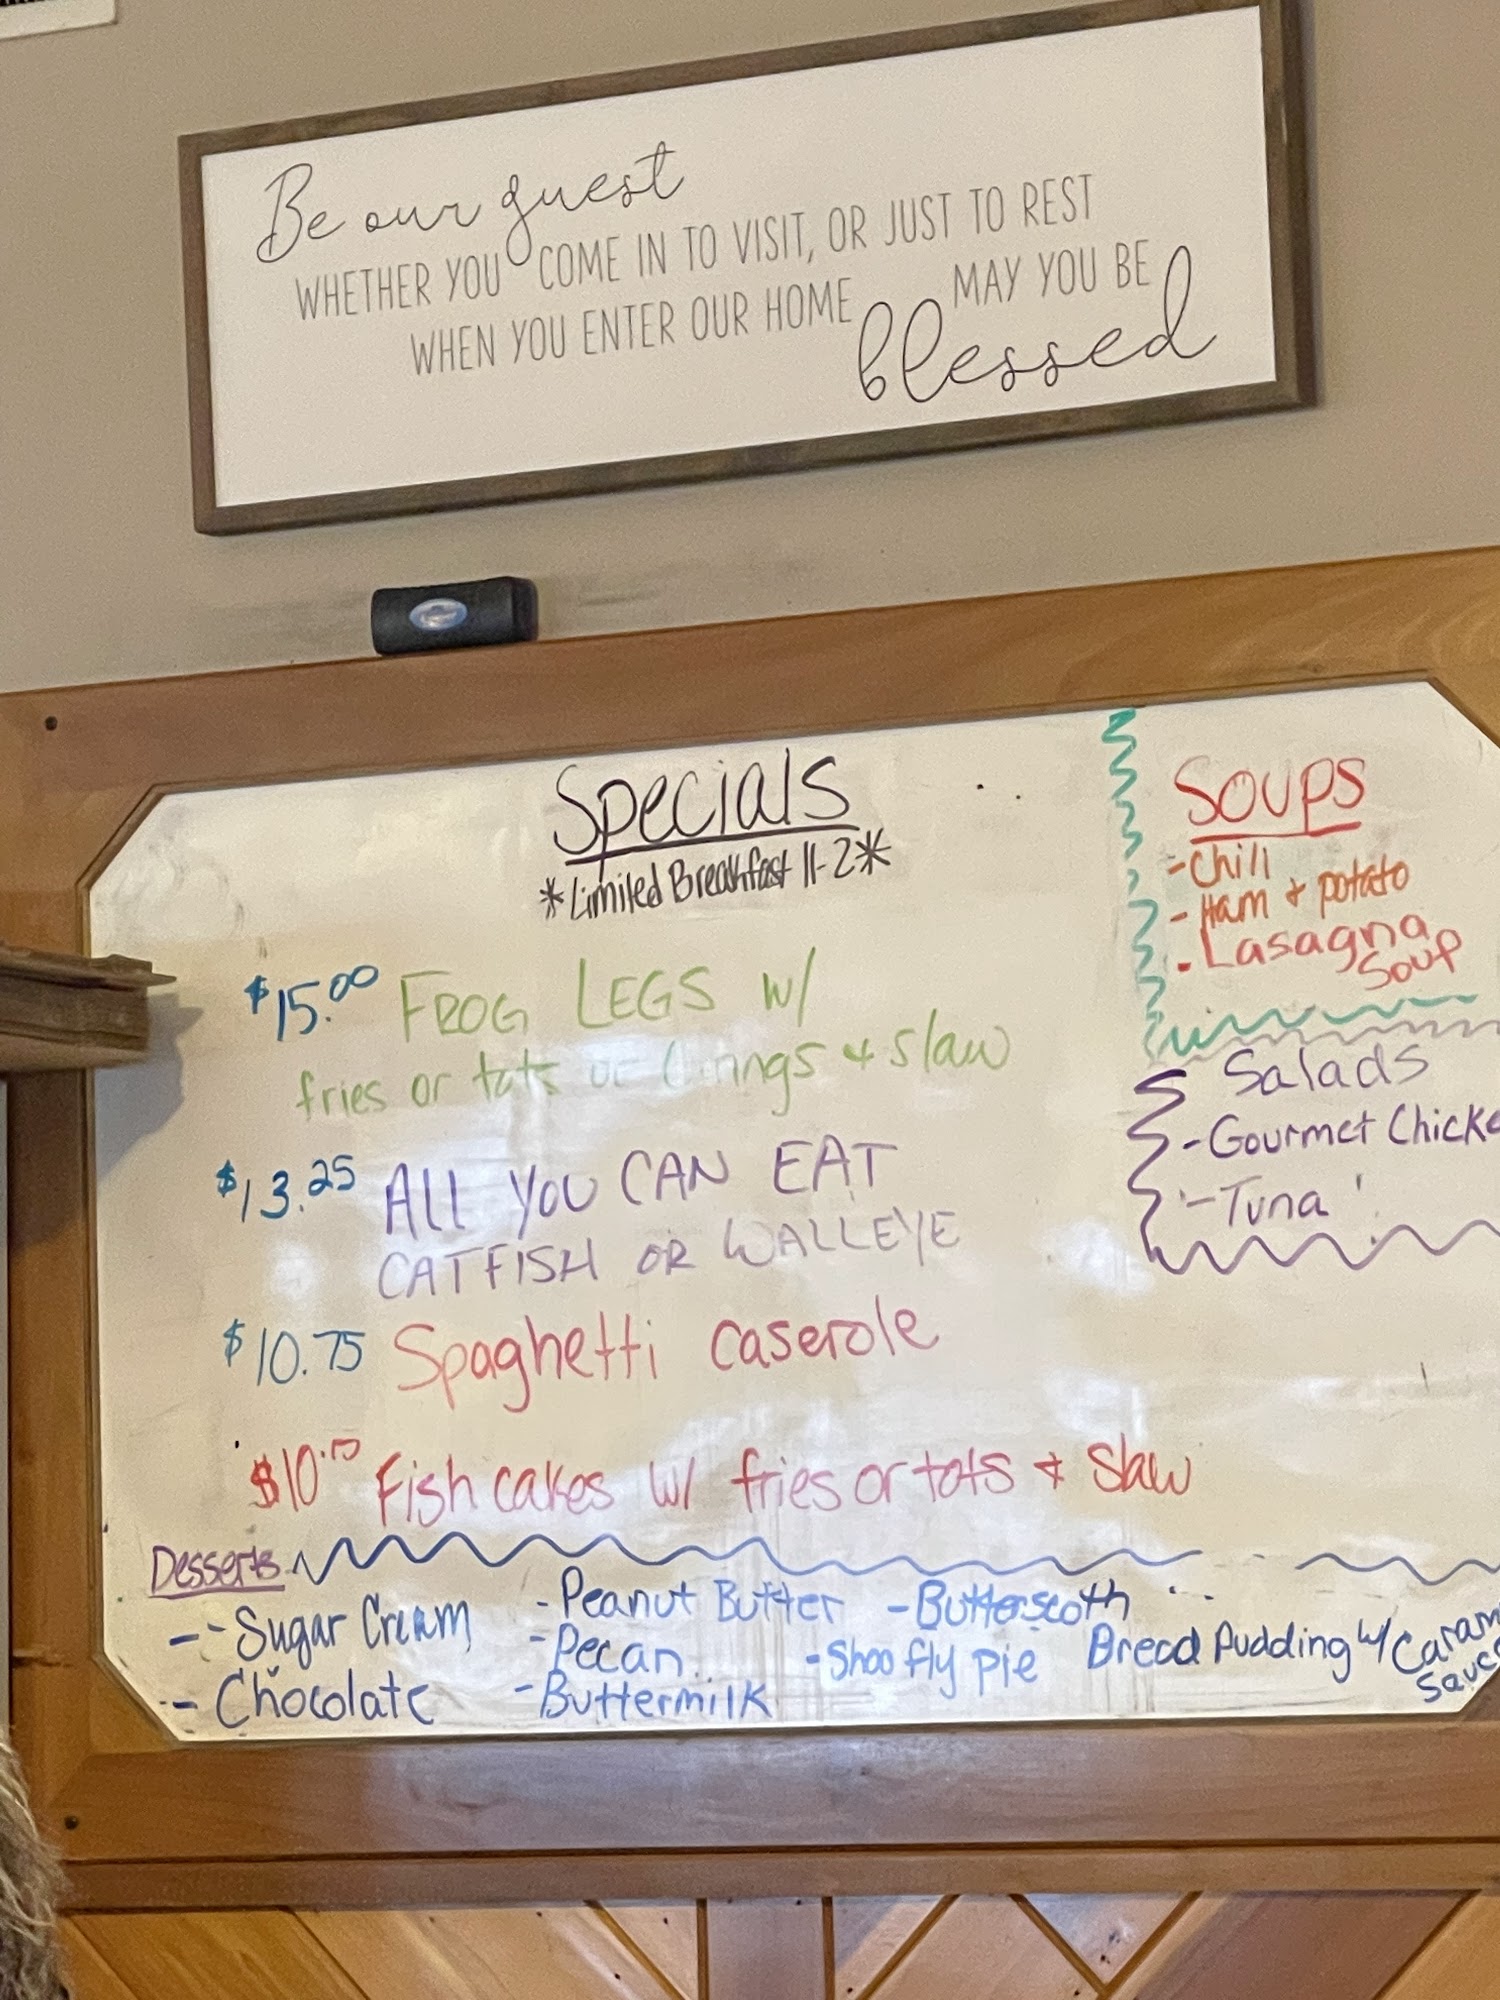 Be our guest
WHETHER YOU COME IN TO VISIT, OR JUST TO REST
WHEN YOU ENTER OUR HOME MAY YOU BE
blessed
Specials
*Limited Breakfast 11-2*
$15.00 FROG LEGS w/
fries or tots or rings & slaw
$13.25 ALL YOU CAN EAT
CATFISH OR WALLEYE
$10.75 Spaghetti caserole
$10. Fish cakes w/ fries or tots & slaw
Soups
- Chili
- Ham & potato
- Lasagna
Soup
Salads
- Gourmet Chicke
- Tuna
Desserts
- Sugar Cream
- Chocolate
- Peanut Butter
- Pecan
- Buttermilk
- Butterscoth
- Shoo fly pie
Bread Pudding w/ Caram
Sauc